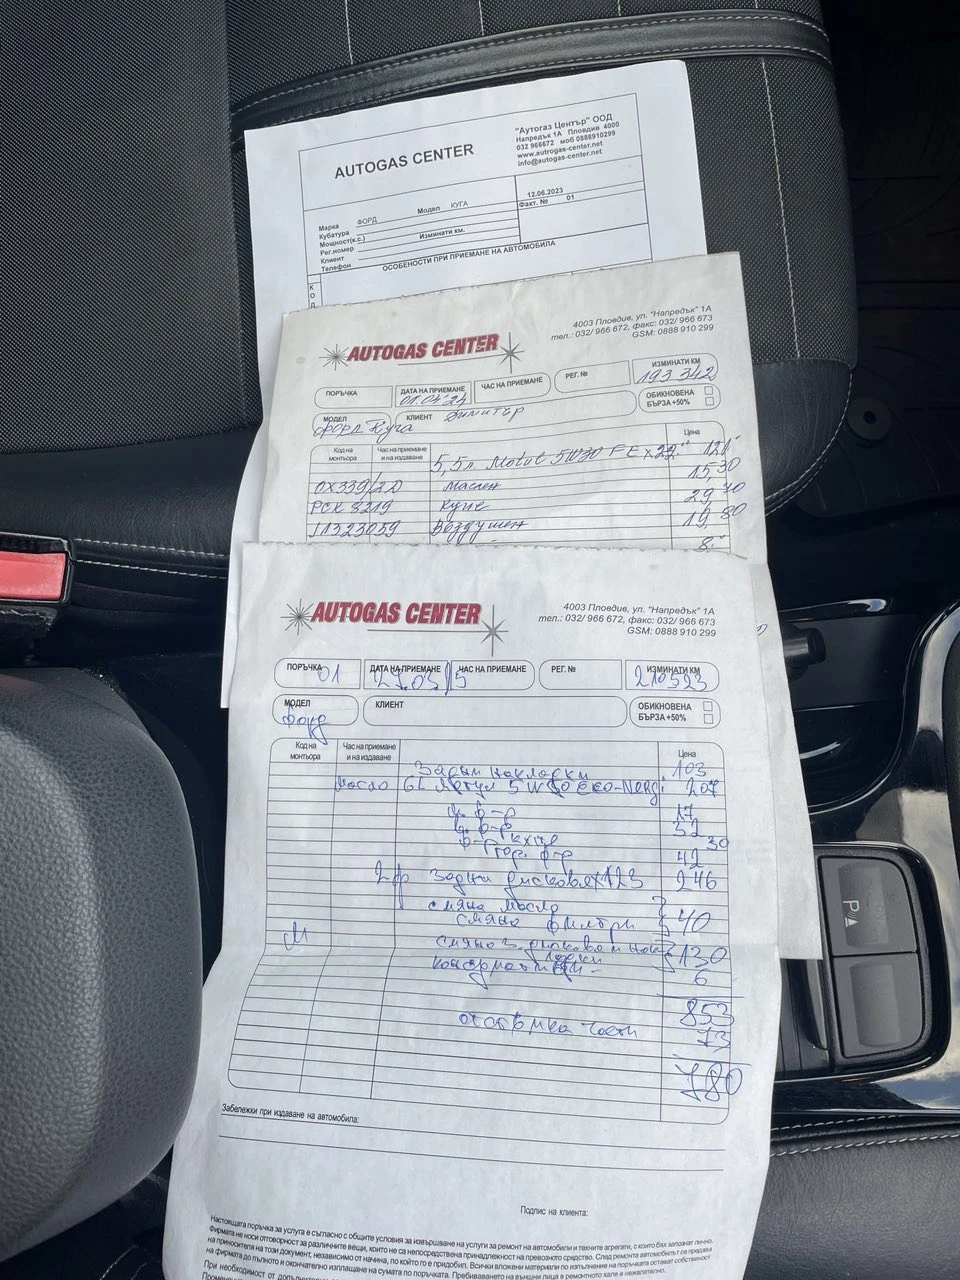 AUTOGAS CENTER
"Аутогаз Център" ООД
Напредък 1А Пловдив 4000
032 966672 моб 0888910299
www.autrogas-center.net
info@autogas-center.net
Марка ФОРД Модел КУГА
Кубатура
Мощност(к.с.)
Рег.номер Изминати км.
Клиент
Телефон
12.06.2023
Факт. № 01
ОСОБЕНОСТИ ПРИ ПРИЕМАНЕ НА АВТОМОБИЛА
К
О
Д
AUTOGAS CENTER
4003 Пловдив, ул. "Напредък" 1А
тел.: 032/ 966 672, факс: 032/ 966 673
GSM: 0888 910 299
ПОРЪЧКА
ДАТА НА ПРИЕМАНЕ 01.04'24
ЧАС НА ПРИЕМАНЕ
РЕГ. №
ИЗМИНАТИ КМ 193 342
МОДЕЛ Форд Куга
КЛИЕНТ Димитър
ОБИКНОВЕНА
БЪРЗА +50%
Код на монтьора
Час на приемане и на издаване
Цена
5,5л. Motul 5W30 FE x 22 121
OX339/2D Маслен 15,30
Купе 29,70
Въздушен 19,80
8
AUTOGAS CENTER
4003 Пловдив, ул. "Напредък" 1А
тел.: 032/ 966 672, факс: 032/ 966 673
GSM: 0888 910 299
ПОРЪЧКА 01
ДАТА НА ПРИЕМАНЕ
ЧАС НА ПРИЕМАНЕ
РЕГ. №
ИЗМИНАТИ КМ 210523
МОДЕЛ Форд
КЛИЕНТ
ОБИКНОВЕНА
БЪРЗА +50%
Код на монтьора
Час на приемане и на издаване
Цена
Задни накладки 103
масло 6L Мотул 5W30 eco-Nergi 207
17
32
ф-р купе 30
гор. ф-р 42
задни дискове x 123 246
смяна масло
смяна филтри 40
смяна з. дискове и накладки 130
консумативи - 6
853
отстъпка части 73
780
Забележки при издаване на автомобила:
Подпис на клиента:
Настоящата поръчка за услуга е съгласно с общите условия за извършване на услуги за ремонт на автомобили и техните агрегати, с които бях запознат лично.
Фирмата не носи отговорност за различните вещи, които не са непосредствена принадлежност на превозното средство. След ремонта автомобилът се предава
на приносителя на този документ, независимо от начина, по който го е придобил. Всички вложени материали по изпълнение на поръчката остават собственост
на фирмата до пълното и окончателно изплащане на сумата по поръчката. Пребиваването на външни лица в ремонтното хале е нежелателно.
При необходимост от
P